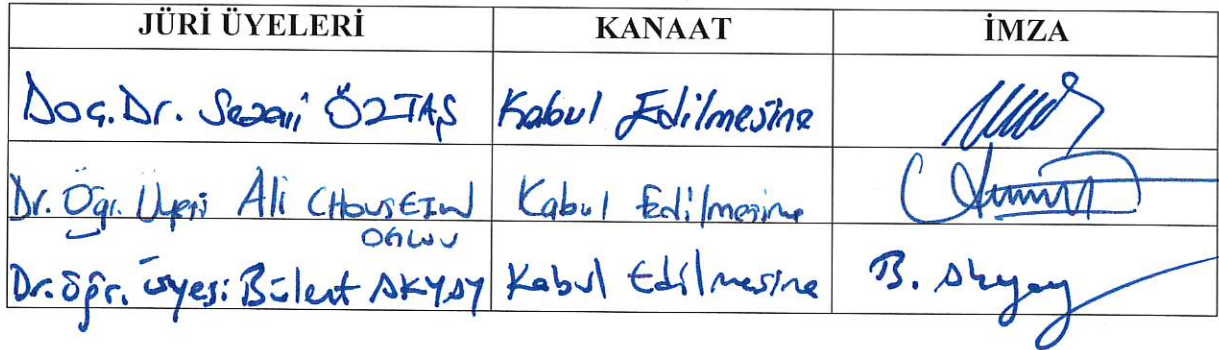 JÜRİ ÜYELERİ KANAAT İMZA
Doç.Dr. Sezai ÖZTAŞ Kabul Edilmesine
Dr. Öğr. Üyesi Ali CHOUSEIN Kabul Edilmesine
OGLOU
Dr. Öğr. Üyesi Bülent AKYAY Kabul Edilmesine B. Akyay